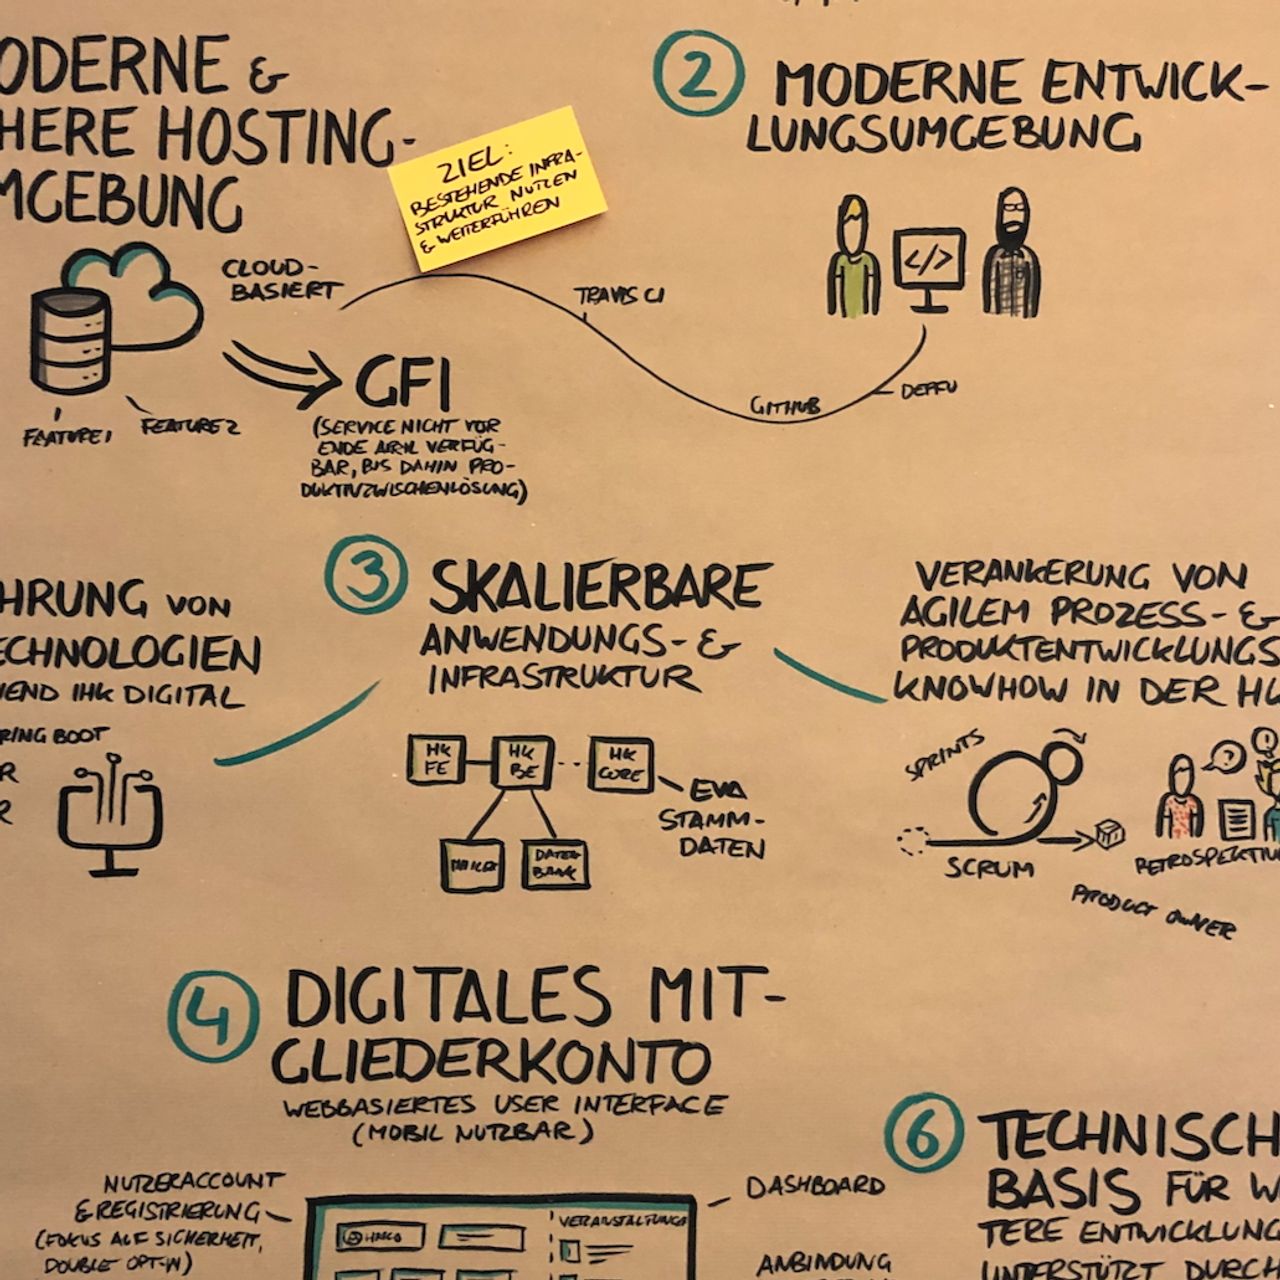 ODERNE &
HERE HOSTING-
MGEBUNG
ZIEL:
BESTEHENDE INFRA-
STRUKTUR NUTZEN
& WEITERFÜHREN
CLOUD-
BASIERT
FEATURE 1
FEATURE 2
GFI
(SERVICE NICHT VOR
ENDE APRIL VERFÜG-
BAR, BIS DAHIN PRO-
DUKTIVZWISCHENLÖSUNG)
2
MODERNE ENTWICK-
LUNGSUMGEBUNG
</>
TRAVIS CI
GITHUB
HRUNG VON
ECHNOLOGIEN
END IHK DIGITAL
RING BOOT
R
R
3
SKALIERBARE
ANWENDUNGS- &
INFRASTRUKTUR
HK
FE
HK
BE
HK
CORE
EVA
STAMM-
DATEN
DATEN
BANK
VERANKERUNG VON
AGILEM PROZESS- &
PRODUKTENTWICKLUNGS
KNOWHOW IN DER HK
SPRINTS
SCRUM
?
!
RETROSPEKTIV
PRODUCT OWNER
4
DIGITALES MIT-
GLIEDERKONTO
WEBBASIERTES USER INTERFACE
(MOBIL NUTZBAR)
NUTZERACCOUNT
& REGISTRIERUNG
(FOKUS AUF SICHERHEIT,
DOUBLE OPT-IN)
VERANSTALTUNGS
DASHBOARD
ANBINDUNG
6
TECHNISCH
BASIS FÜR W
TERE ENTWICKLUNG
UNTERSTÜTZT DURCH